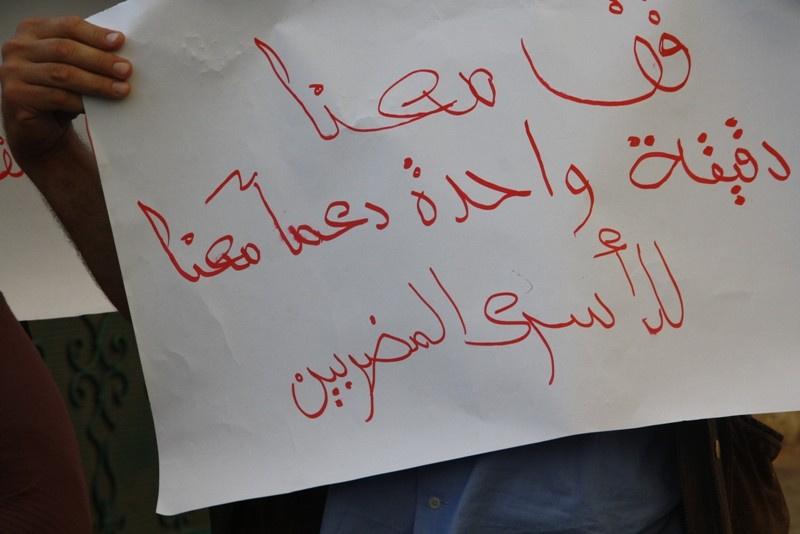 قف معنا
دقيقة واحدة دعماً معنا
للأسرى المضربين